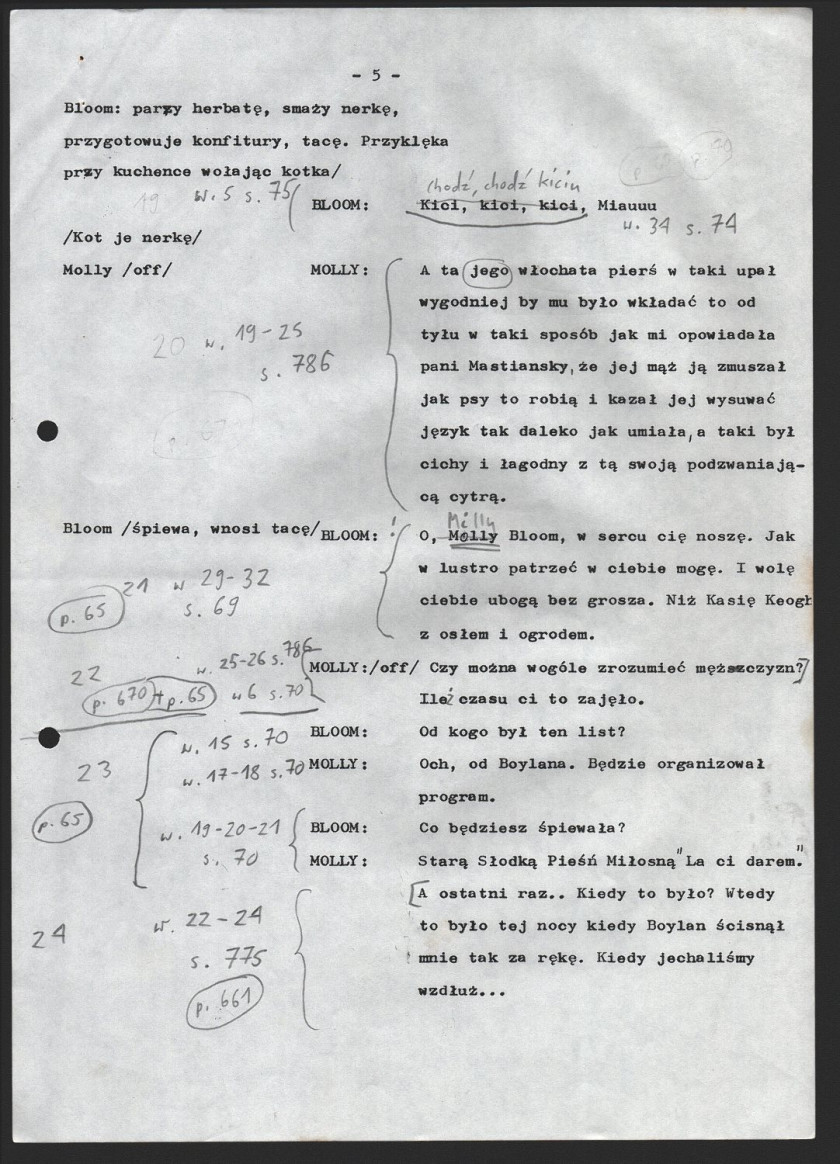 - 5 -
Bloom: parzy herbatę, smaży nerkę,
przygotowuje konfitury, tacę. Przyklęka
przy kuchence wołając kotka/
chodź, chodź kiciu
19 w. 5 s. 75 BLOOM: Kici, kici, kici, Miauuu
w. 34 s. 74
/Kot je nerkę/
Molly /off/ MOLLY: A ta jego włochata pierś w taki upał
wygodniej by mu było wkładać to od
20 w. 19-25 tyłu w taki sposób jak mi opowiadała
s. 786 pani Mastiansky, że jej mąż ją zmuszał
jak psy to robią i kazał jej wysuwać
język tak daleko jak umiała, a taki był
cichy i łagodny z tą swoją podzwaniają-
cą cytrą.
Milly
Bloom /śpiewa, wnosi tacę/ BLOOM: O, Molly Bloom, w sercu cię noszę. Jak
21 w 29-32 w lustro patrzeć w ciebie mogę. I wolę
p. 65 s. 69 ciebie ubogą bez grosza. Niż Kasię Keogh
z osłem i ogrodem.
22 w. 25-26 s. 786 MOLLY:/off/ Czy można wogóle zrozumieć męższczyzn?
p. 670 + p. 65 w 6 s. 70 Ileż czasu ci to zajęło.
w. 15 s. 70 BLOOM: Od kogo był ten list?
23 w. 17-18 s. 70 MOLLY: Och, od Boylana. Będzie organizował
program.
p. 65 w. 19-20-21 BLOOM: Co będziesz śpiewała?
s. 70 MOLLY: Starą Słodką Pieśń Miłosną "La ci darem."
A ostatni raz.. Kiedy to było? Wtedy
24 w. 22-24 to było tej nocy kiedy Boylan ścisnął
s. 775 mnie tak za rękę. Kiedy jechaliśmy
p. 661 wzdłuż...